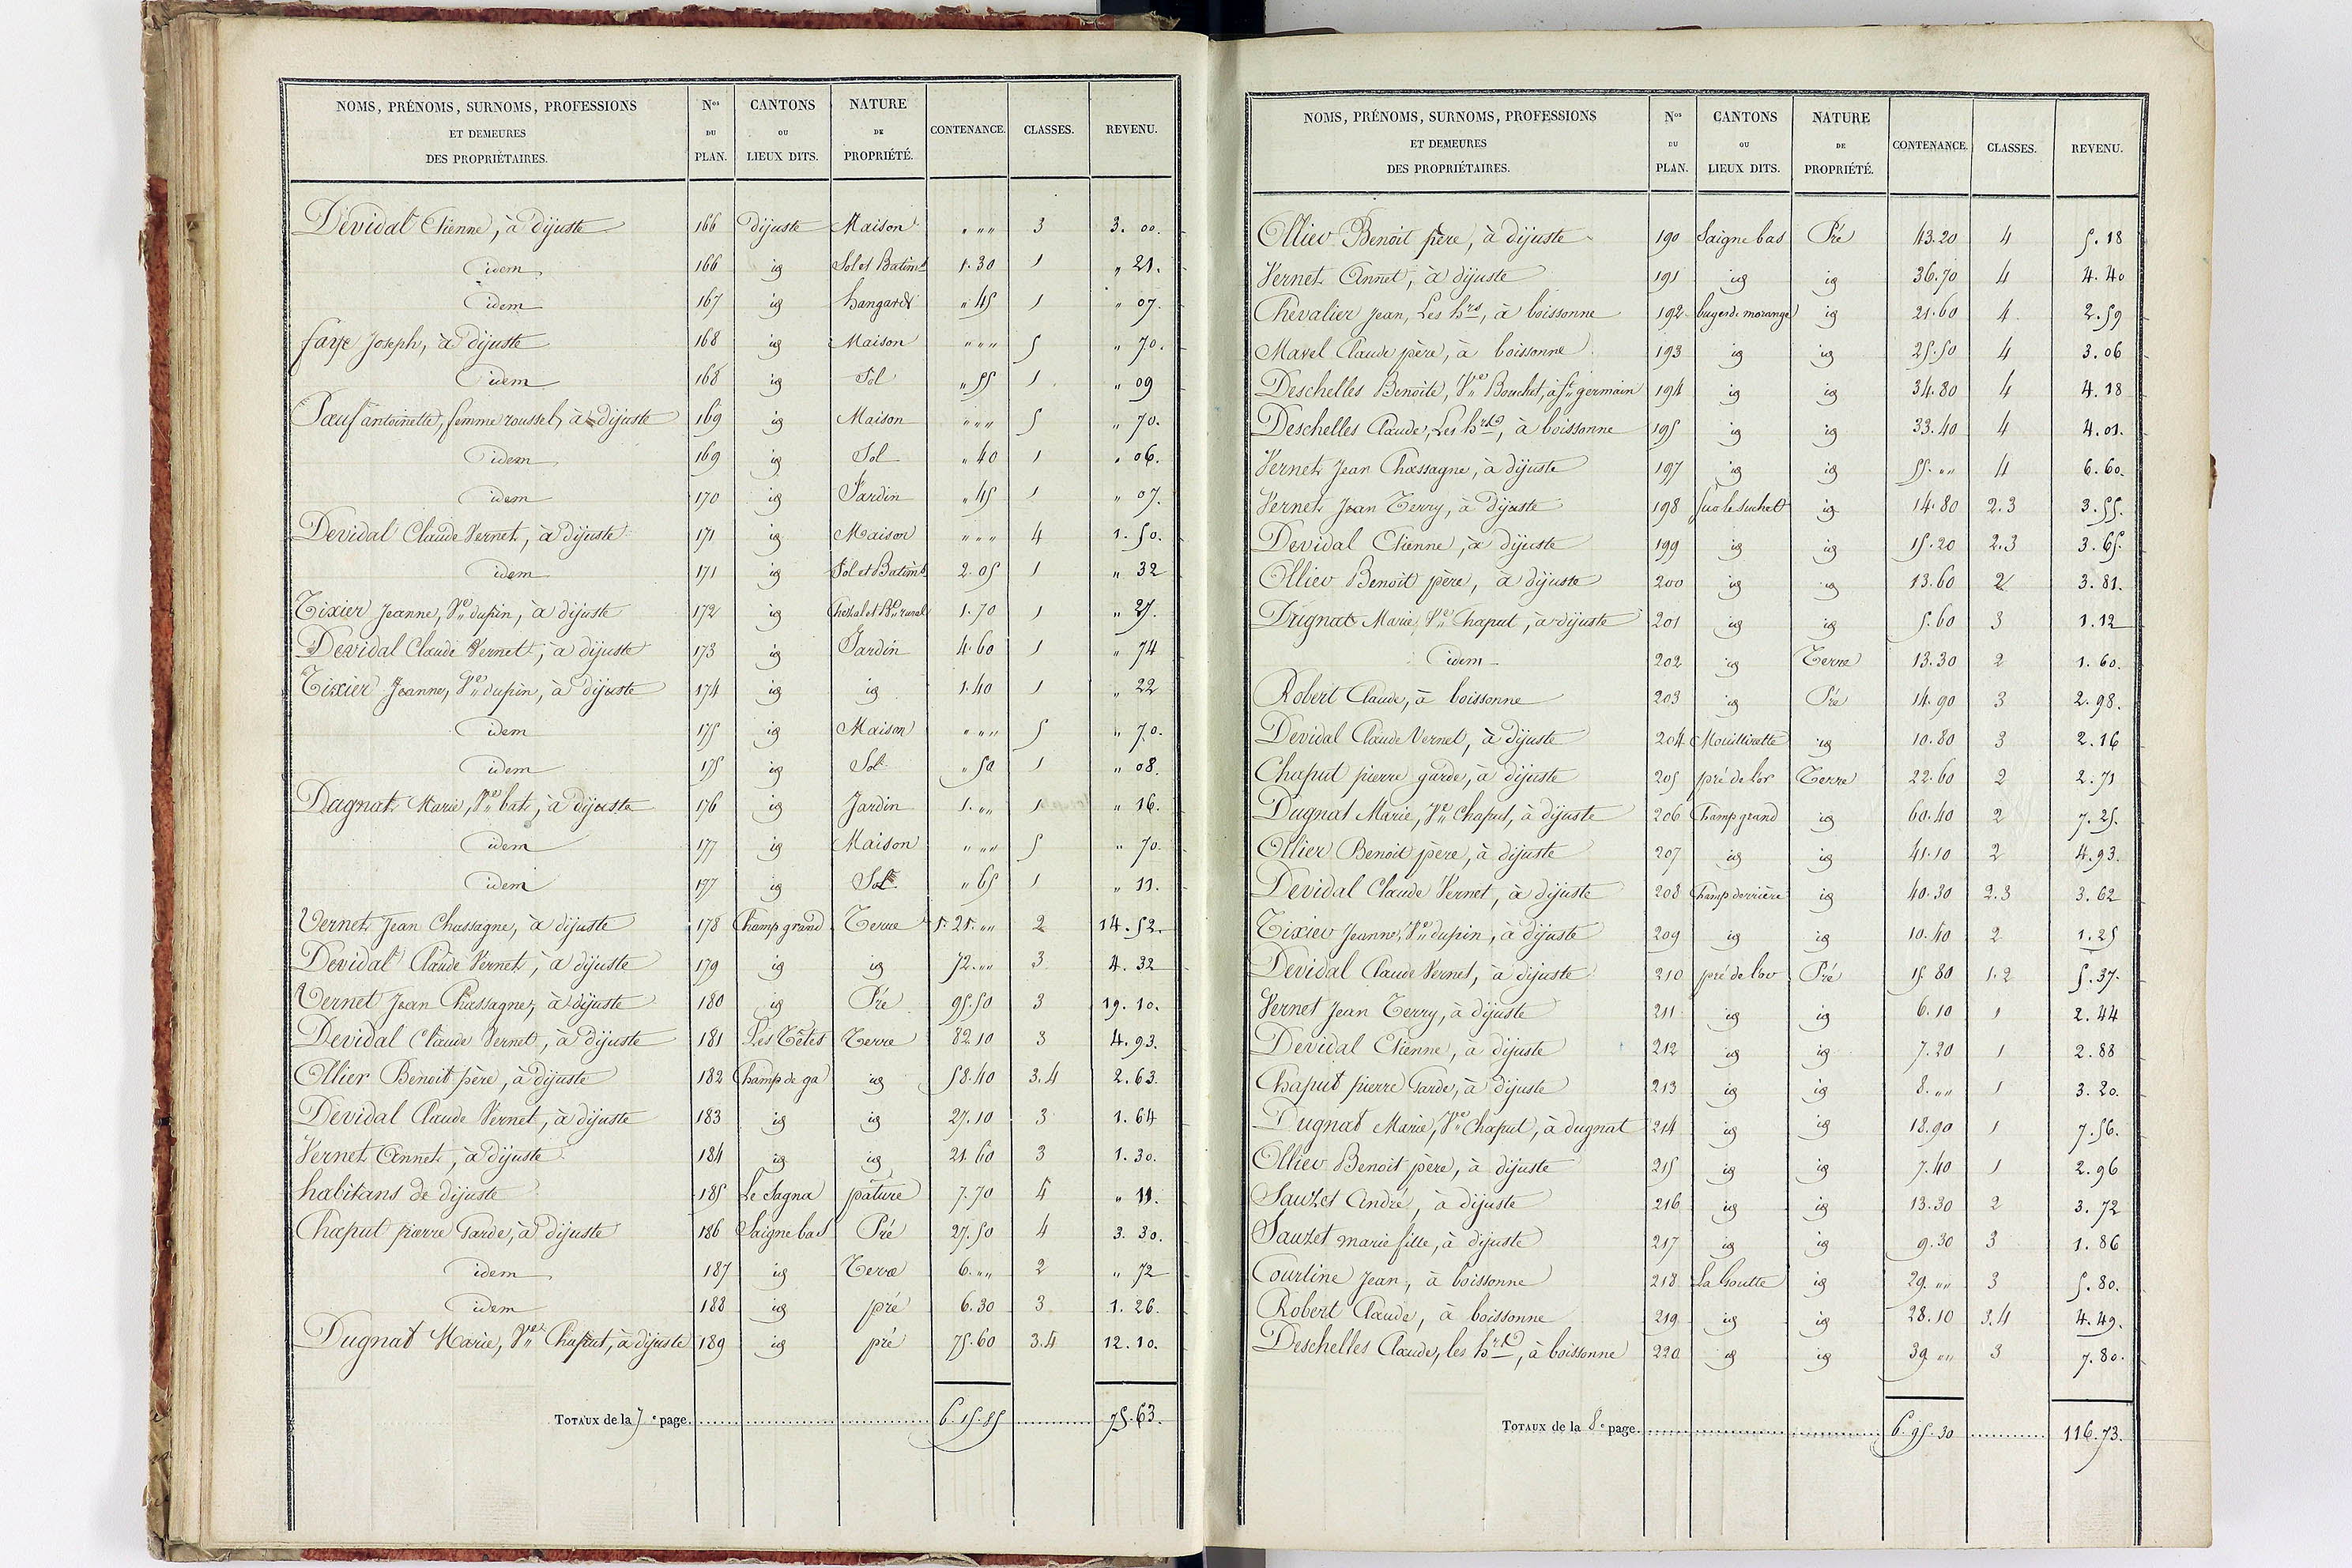 NOMS, PRÉNOMS, SURNOMS, PROFESSIONS ET DEMEURES DES PROPRIÉTAIRES. Nos DU PLAN. CANTONS OU LIEUX DITS. NATURE DE PROPRIÉTÉ. CONTENANCE. CLASSES. REVENU.
Devidal Etienne, à dijuste 166 dijuste Maison " " " 3 3. 00.
idem 166 id Sol et Batimt 1. 30 1 " 21.
idem 167 id hangard " 45 1 " 07.
faye Joseph, à dijuste 168 id Maison " " " 5 " 70.
idem 168 id Sol " 55 1 " 09
antoinette, femme roussel, à dijuste 169 id Maison " " " 5 " 70.
idem 169 id Sol " 40 1 " 06.
idem 170 id Jardin " 45 1 " 07.
Devidal Claude Vernet, à dijuste 171 id Maison " " " 4 1. 50.
idem 171 id Sol et Batimt 2. 05 1 " 32
Tixier Jeanne, Ve dupin, à dijuste 172 id 1. 70 1 " 27.
Devidal Claude Vernet, à dijuste 173 id Jardin 4. 60 1 " 74
Tixier Jeanne, Ve dupin, à dijuste 174 id id 1. 40 1 " 22
idem 175 id Maison " " " 5 " 70.
idem 175 id Sol " 50 1 " 08.
Dugnat Marie, Ve bat, à dijuste 176 id Jardin 1. " " 1 " 16.
idem 177 id Maison " " " 5 " 70.
idem 177 id Sol " 65 1 " 11.
Vernet Jean Chassagne, à dijuste 178 Champ grand Terre 1. 21. " " 2 14. 52.
Devidal Claude Vernet, à dijuste 179 id id 72. " " 3 4. 32
Vernet Jean Chassagne, à dijuste 180 id Pré 95. 50 3 19. 10.
Devidal Claude Vernet, à dijuste 181 Les Têtes Terre 82 10 3 4. 93.
Ollier Benoit père, à dijuste 182 Champ de ga id 58. 40 3.4 2. 63.
Devidal Claude Vernet, à dijuste 183 id id 27. 10 3 1. 64
Vernet Annet, à dijuste 184 id id 21. 60 3 1. 30.
habitans de dijuste 185 Le Sagna pâture 7. 70 4 " 11.
Chaput pierre Garde, à dijuste 186 Saigne bas Pré 27. 50 4 3. 30.
idem 187 id Terre 6. " " 2 " 72
idem 188 id pré 6. 30 3 1. 26.
Dugnat Marie, Ve Chaput, à dijuste 189 id pré 75. 60 3.4 12. 10.
TOTAUX de la 7e page. 6. 15. 85 75. 63.
NOMS, PRÉNOMS, SURNOMS, PROFESSIONS ET DEMEURES DES PROPRIÉTAIRES. Nos DU PLAN. CANTONS OU LIEUX DITS. NATURE DE PROPRIÉTÉ. CONTENANCE. CLASSES. REVENU.
Ollier Benoit père, à dijuste 190 Saigne bas Pré 43. 20 4 5. 18
Vernet Annet, à dijuste 191 id id 36. 70 4 4. 40
Chevalier Jean, Les hrs, à boissonne 192 morange id 21. 60 4 2. 59
Mavel Claude père, à boissonne 193 id id 25. 50 4 3. 06
Deschelles Benoite, Ve Bouchet, à St germain 194 id id 34. 80 4 4. 18
Deschelles Claude, Les hrs, à boissonne 195 id id 33. 40 4 4. 01.
Vernet Jean Chassagne, à dijuste 197 id id 55. " " 4 6. 60.
Vernet Jean Terry, à dijuste 198 Suc le suchet id 14. 80 2.3 3. 55.
Devidal Etienne, à dijuste 199 id id 15. 20 2.3 3. 65.
Ollier Benoit père, à dijuste 200 id id 13. 60 2 3. 81.
Dugnat Marie, Ve Chaput, à dijuste 201 id id 5. 60 3 1. 12
idem 202 id Terre 13. 30 2 1. 60.
Robert Claude, à boissonne 203 id Pré 14. 90 3 2. 98.
Devidal Claude Vernet, à dijuste 204 Mouillirette id 10. 80 3 2. 16
Chaput pierre garde, à dijuste 205 pré de l'or Terre 22. 60 2 2. 71
Dugnat Marie, Ve Chaput, à dijuste 206 Champ grand id 60. 40 2 7. 25.
Ollier Benoit père, à dijuste 207 id id 41. 10 2 4. 93.
Devidal Claude Vernet, à dijuste 208 Champ derrière id 40. 30 2.3 3. 62
Tixier Jeanne, Ve dupin, à dijuste 209 id id 10. 40 2 1. 25
Devidal Claude Vernet, à dijuste 210 pré de l'or Pré 15. 80 1.2 5. 37.
Vernet Jean Terry, à dijuste 211 id id 6. 10 1 2. 44
Devidal Etienne, à dijuste 212 id id 7. 20 1 2. 88
Chaput pierre Garde, à dijuste 213 id id 8. " " 1 3. 20.
Dugnat Marie, Ve Chaput, à dugnat 214 id id 18. 90 1 7. 56.
Ollier Benoit père, à dijuste 215 id id 7. 40 1 2. 96
Sauzet André, à dijuste 216 id id 13. 30 2 3. 72
Sauzet marie fille, à dijuste 217 id id 9. 30 3 1. 86
Courtine Jean, à boissonne 218 La Goutte id 29. " " 3 5. 80.
Robert Claude, à boissonne 219 id id 28. 10 3.4 4. 49.
Deschelles Claude, les hrs, à boissonne 220 id id 39 " " 3 7. 80.
TOTAUX de la 8e page. 6. 95. 30 116. 73.